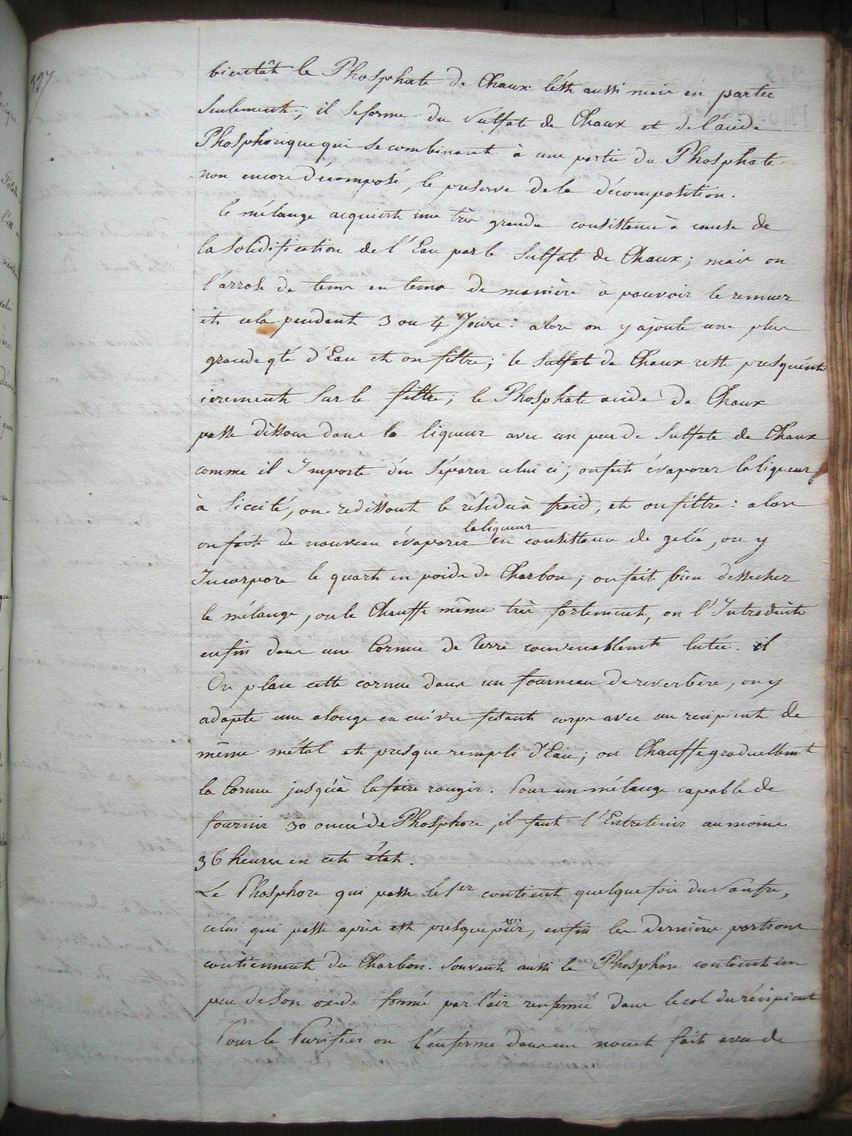 327
bientôt le Phosphate de Chaux l'est aussi mais en partie
seulement; il se forme du Sulfat de Chaux et de l'acide
Phosphorique qui se combinant à une partie du Phosphate
non encore décomposé, le préserve de la décomposition.
le mélange acquiert une très grande consistance à cause de
la Solidification de l'Eau par le Sulfat de Chaux; mais on
l'arrose de tems en tems de manière à pouvoir le remuer
et cela pendant 3 ou 4 Jours: alors on y ajoute une plus
grande qté d'Eau et on filtre; le Sulfat de Chaux reste presqu'enti
èrement sur le filtre; le Phosphate acide de Chaux
passe dissou dans la liqueur avec un peu de Sulfate de Chaux
comme il Importe d'en Séparer celui ci; on fait évaporer la liqueur
à Siccité, on redissout le résidu à froid, et on filtre: alors
on fait de nouveau évaporer la liqueur en consistance de gelée, on y
Incorpore le quart en poids de Charbon; on fait bien dessécher
le mélange, on le Chauffe même très fortement, on l'Introduit
enfin dans une Cornue de Terre convenablemt lutée. il
On place cette cornue dans un fourneau de reverbère, on y
adapte une alonge en cuivre fesant corps avec un recipient de
même métal et presque rempli d'Eau; on Chauffe graduellemt
la Cornue jusqu'à la faire rougir. Pour un mélange capable de
fournir 30 onces de Phosphore, il faut l'Entretenir au moins
36 heures en cet état.
Le Phosphore qui passe le 1er contient quelque fois du Soufre,
celui qui passe après est presque pûr, enfin les Dernières portions
contiennent du Charbon. Souvent aussi le Phosphore contient un
peu de Son oxide formé par l'air renfermé dans le col du récipient
Pour le Purifier on l'enferme dans un nouet fait avec de